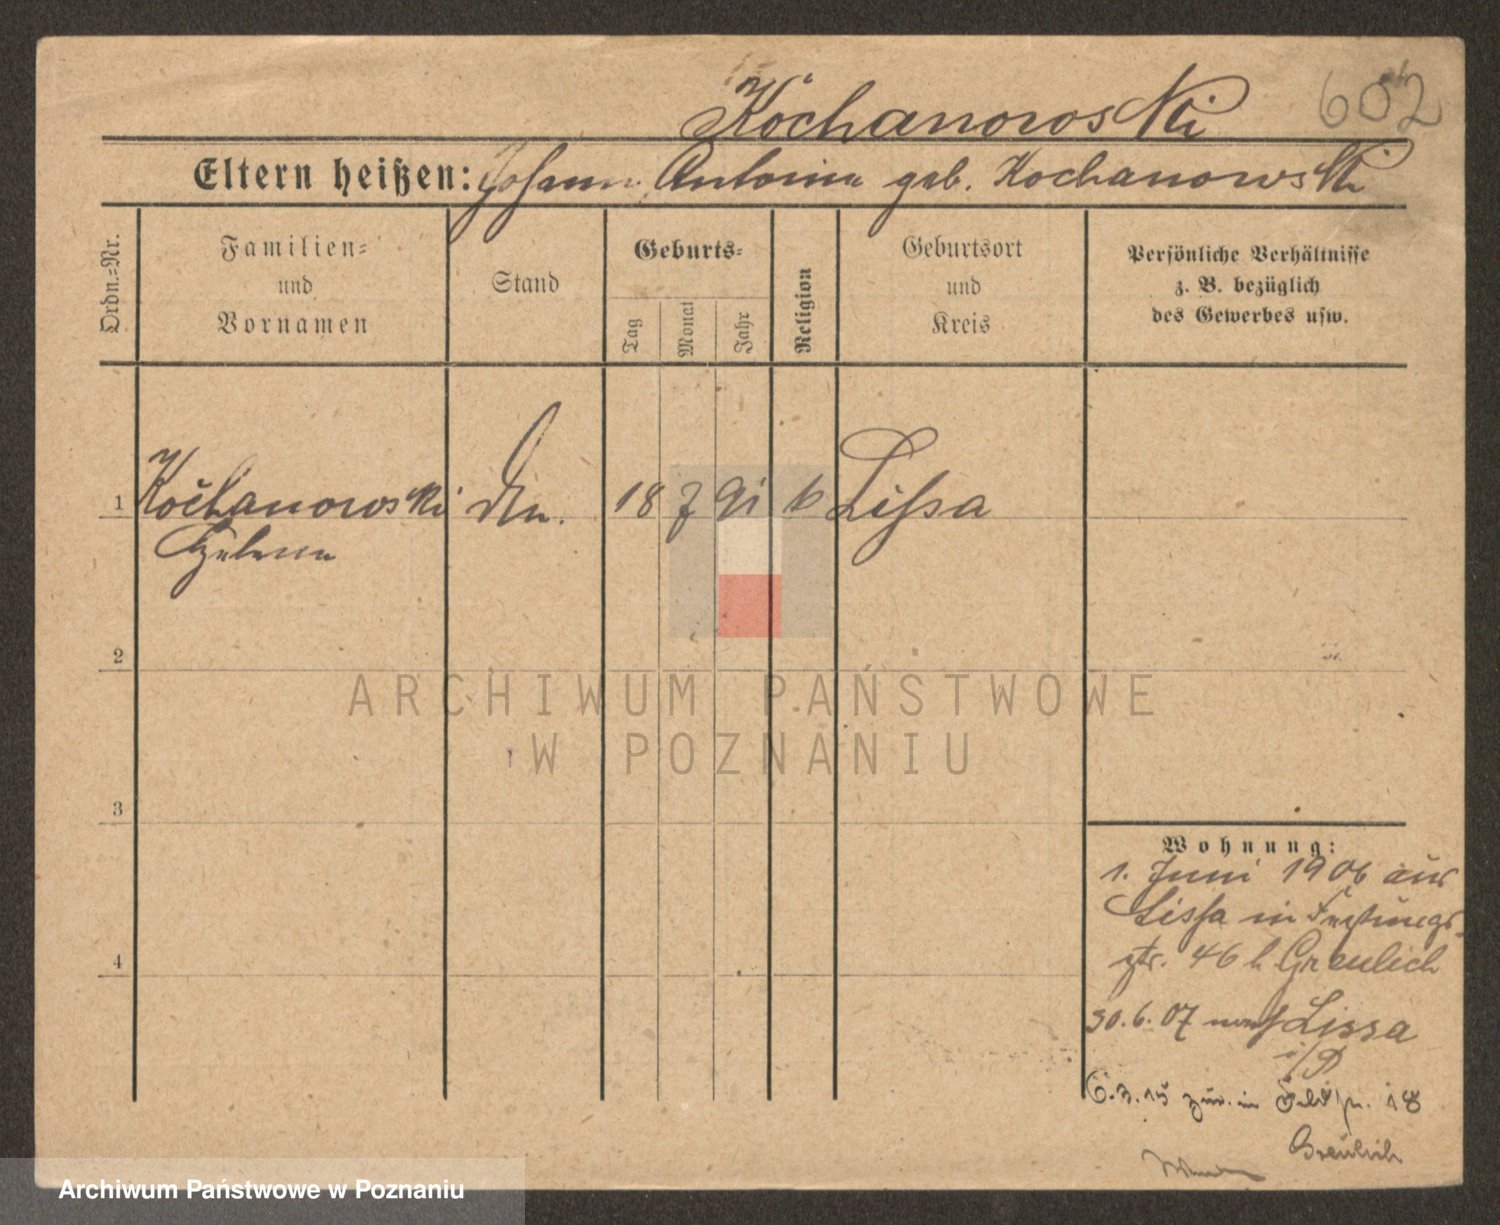 602
Kochanowski
Eltern heißen: Johann, Antonina geb. Kochanowski
Ordn.-Nr.
Familien- und Vornamen
Stand
Geburts-
Tag
Monat
Jahr
Religion
Geburtsort und Kreis
Persönliche Verhältnisse
z. B. bezüglich
des Gewerbes usw.
1 Kochanowski 18 7 91 k Lissa
Helene
2
ARCHIWUM PAŃSTWOWE
W POZNANIU
3
Wohnung:
1. Juni 1906 aus
Lissa in Festungs-
str. 46 b Greulich
30.6.07 nach Lissa
i/P
4
6.3.15 zur. in 18
Greulich
Archiwum Państwowe w Poznaniu